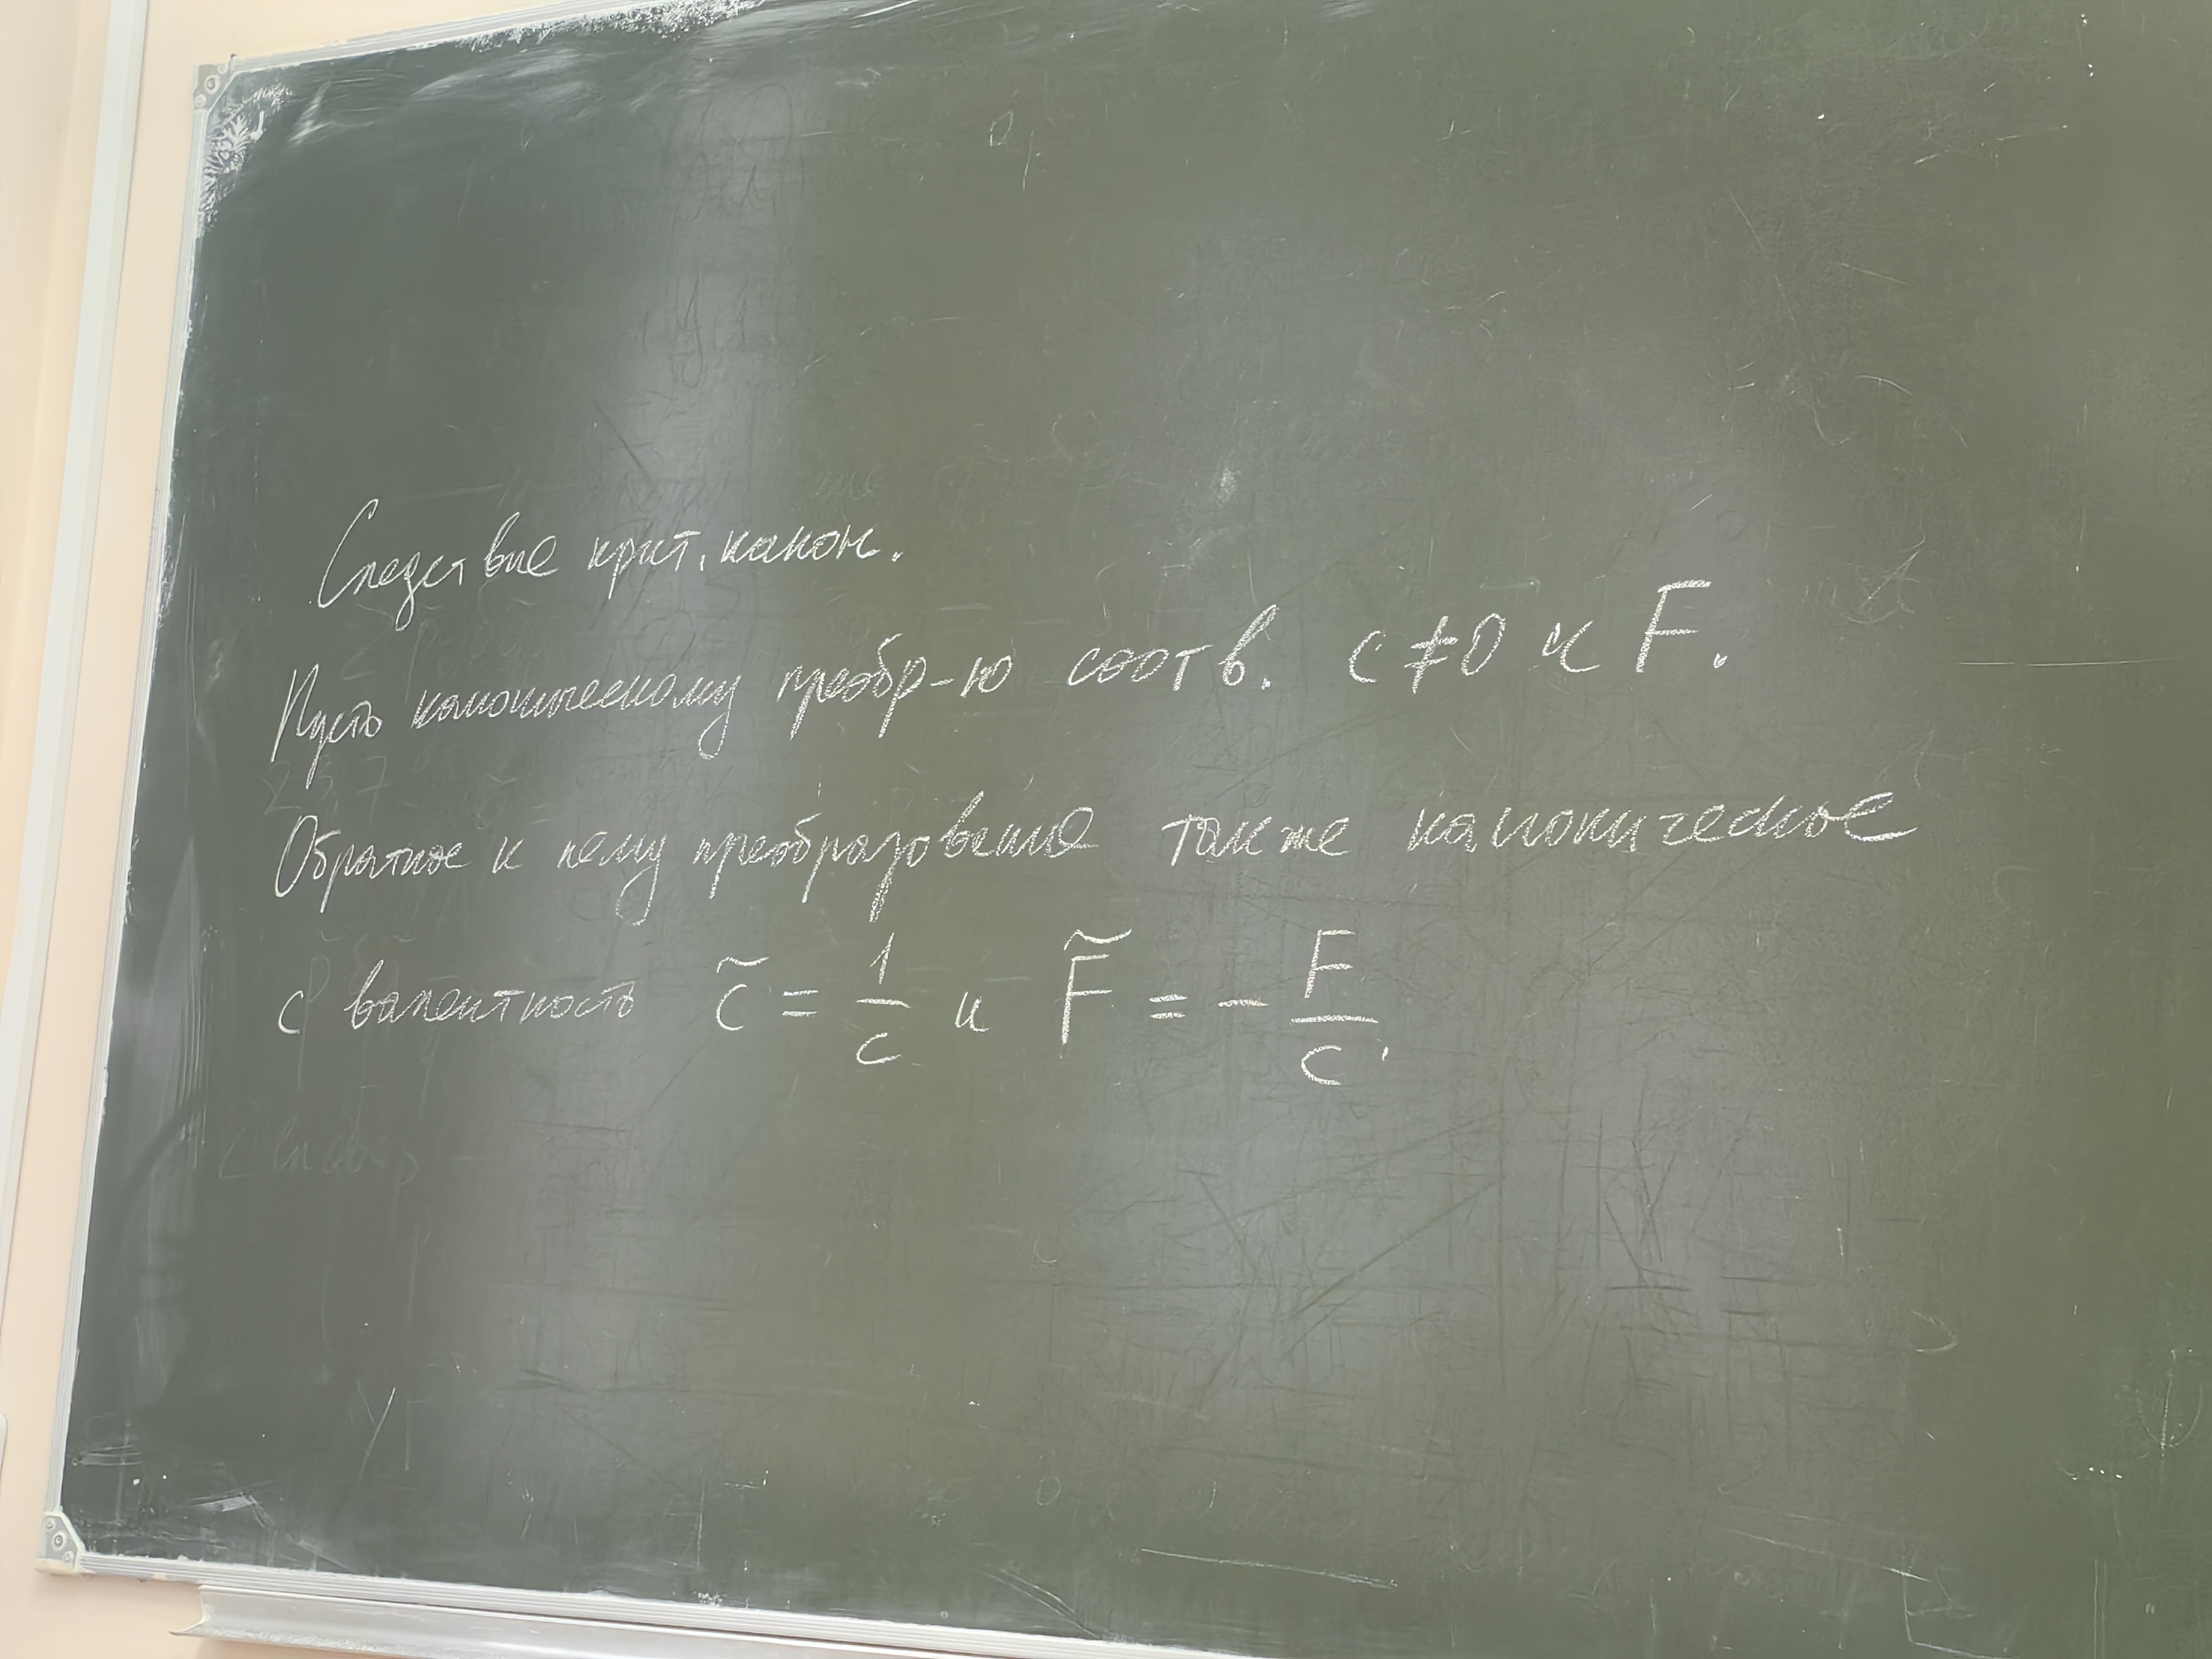 Следствие крит. канон.
Пусть каноническому преобр-ю соотв. c ≠ 0 и F.
Обратное к нему преобразование также каноническое
с валентность c̃ = 1/c и F̃ = - F/c.